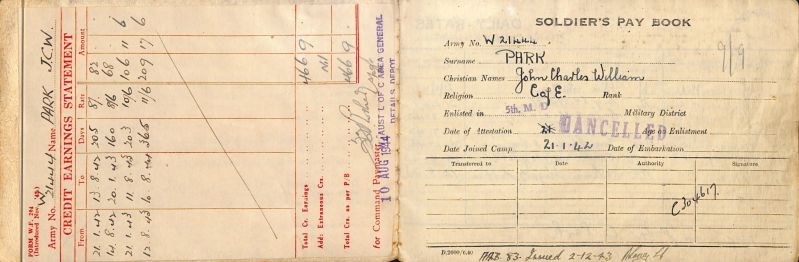 FORM W.F. 294
(Introduced Nov., 43)
Army No. W 21444 Name PARK J.C.W.
CREDIT EARNINGS STATEMENT
From To Days Rate Amount
21. 1. 42 13. 8. 42 205 8/- 82
14. 8. 42 20. 1. 43 160 8/6 68
21. 1. 43 11. 8. 43 203 10/6 106 11 6
12. 8. 43 10. 8. 44 365 11/6 209 17 6
Total Cr. Earnings 466 9
Add: Extraneous Crs. Nil
Total Crs. as per P/B 466 9
for Command Paymaster
10 AUG 1944
W. AUST L OF C AREA GENERAL
DETAILS DEPOT
SOLDIER'S PAY BOOK
Army No. W 21444
9/9
Surname PARK
Christian Names John Charles William
Religion C of E. Rank
Enlisted in 5th, M. D. Military District
Date of Attestation 21 Age on Enlistment
CANCELLED
Date Joined Camp 21.1.42 Date of Embarkation
Transferred to Date Authority Signature
C304617.
D.2000/6.40
83. Issued 2-12-43